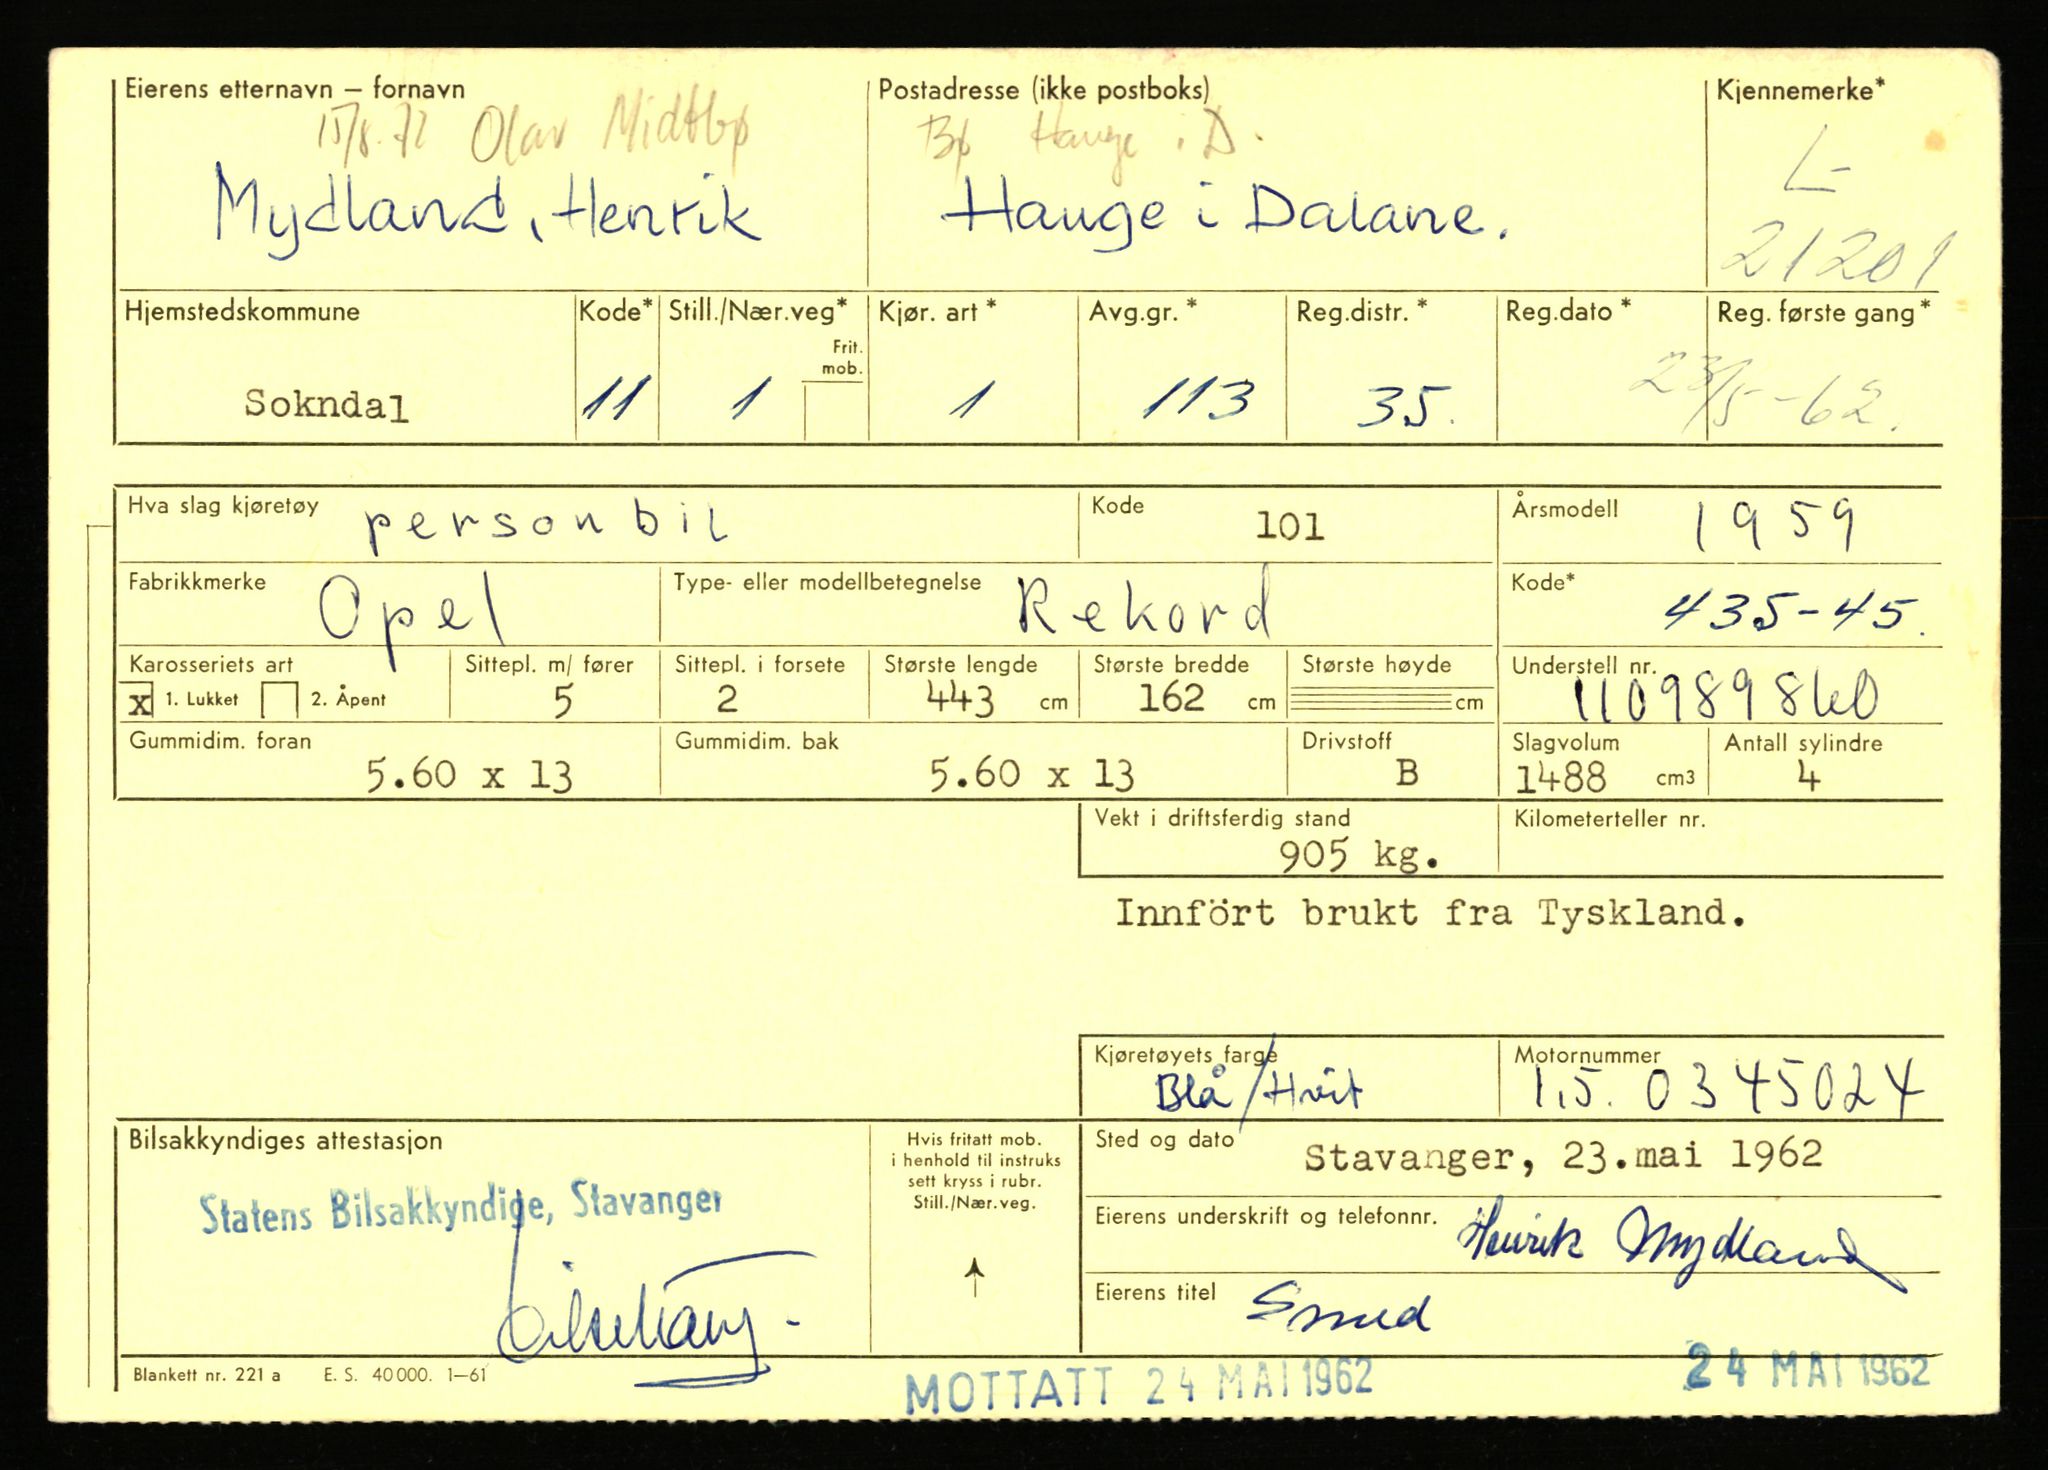 Eierens etternavn – fornavn Postadresse (ikke postboks) Kjennemerke*
15/8.72 Olav Midtbø Bø Hauge i D. L-
Mydland, Henrik Hauge i Dalane. 21201
Hjemstedskommune Kode* Still./Nær.veg* Kjør. art * Avg.gr. * Reg.distr. * Reg.dato * Reg. første gang*
Frit.
mob.
Sokndal 11 1 1 113 35. 23/5-62.
Hva slag kjøretøy personbil Kode 101 Årsmodell 1959
Fabrikkmerke Opel Type- eller modellbetegnelse Rekord Kode* 435-45.
Karosseriets art Sittepl. m/ fører Sittepl. i forsete Største lengde Største bredde Største høyde Understell nr.
x 1. Lukket 2. Åpent 5 2 443 cm 162 cm cm
Gummidim. foran Gummidim. bak Drivstoff Slagvolum Antall sylindre
5.60 x 13 5.60 x 13 B 1488 cm3 4
Vekt i driftsferdig stand Kilometerteller nr.
905 kg.
Innfört brukt fra Tyskland.
Kjøretøyets farge Motornummer
Blå/Hvit 1,5. 0345024
Bilsakkyndiges attestasjon Hvis fritatt mob. Sted og dato Stavanger, 23.mai 1962
i henhold til instruks
sett kryss i rubr.
Still./Nær.veg.
Statens Bilsakkyndige, Stavanger
Eierens underskrift og telefonnr. Henrik Mydland
Eierens titel Smed
Blankett nr. 221 a E. S. 40 000. 1–61
MOTTATT 24 MAI 1962 24 MAI 1962